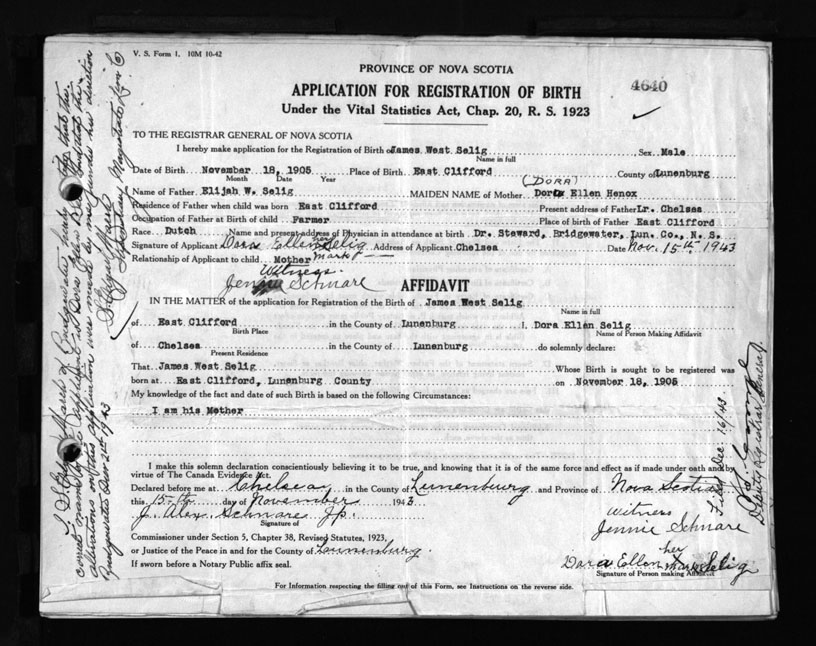 V. S. Form 1, 10M 10-42
PROVINCE OF NOVA SCOTIA
4640
APPLICATION FOR REGISTRATION OF BIRTH
Under the Vital Statistics Act, Chap. 20, R. S. 1923
TO THE REGISTRAR GENERAL OF NOVA SCOTIA
I hereby make application for the Registration of Birth of James West Selig Sex Male
Name in full
Date of Birth November 18, 1905 Place of Birth East Clifford County of Lunenburg
Month Date Year
(DORA)
Name of Father Elijah W. Selig MAIDEN NAME of Mother Ellen Henox
Residence of Father when child was born East Clifford Present address of Father Lr. Chelsea
Occupation of Father at Birth of child Farmer Place of birth of Father East Clifford
Race Dutch Name and present address of Physician in attendance at birth Dr. Steward, Bridgewater, Lun. Co., N. S.
Signature of Applicant Dora Ellen her Selig Address of Applicant Chelsea Date Nov. 15th 1943
Relationship of Applicant to child Mother mark
Witness.
Jennie Schnare
AFFIDAVIT
IN THE MATTER of the application for Registration of the Birth of James West Selig
Name in full
of East Clifford in the County of Lunenburg I, Dora Ellen Selig
Birth Place Name of Person Making Affidavit
of Chelsea in the County of Lunenburg do solemnly declare:
Present Residence
That James West Selig Whose Birth is sought to be registered was
born at East Clifford, Lunenburg County on November 18, 1905
My knowledge of the fact and date of such Birth is based on the following Circumstances:
I am his Mother
I make this solemn declaration conscientiously believing it to be true, and knowing that it is of the same force and effect as if made under oath and by
virtue of The Canada Evidence Act.
Declared before me at Chelsea in the County of Lunenburg and Province of Nova Scotia
this 15th day of November 1943
J. Alex Schnare J.p.
Signature of
Witness
Jennie Schnare
Commissioner under Section 5, Chapter 38, Revised Statutes, 1923,
or Justice of the Peace in and for the County of Lunenburg.
If sworn before a Notary Public affix seal.
her
Dora Ellen mark Selig
Signature of Person making Affidavit
For Information respecting the filling out of this Form, see Instructions on the reverse side.
Filed Dec. 16/43
Deputy Registrar General
alterations on this application were made by me under her direction